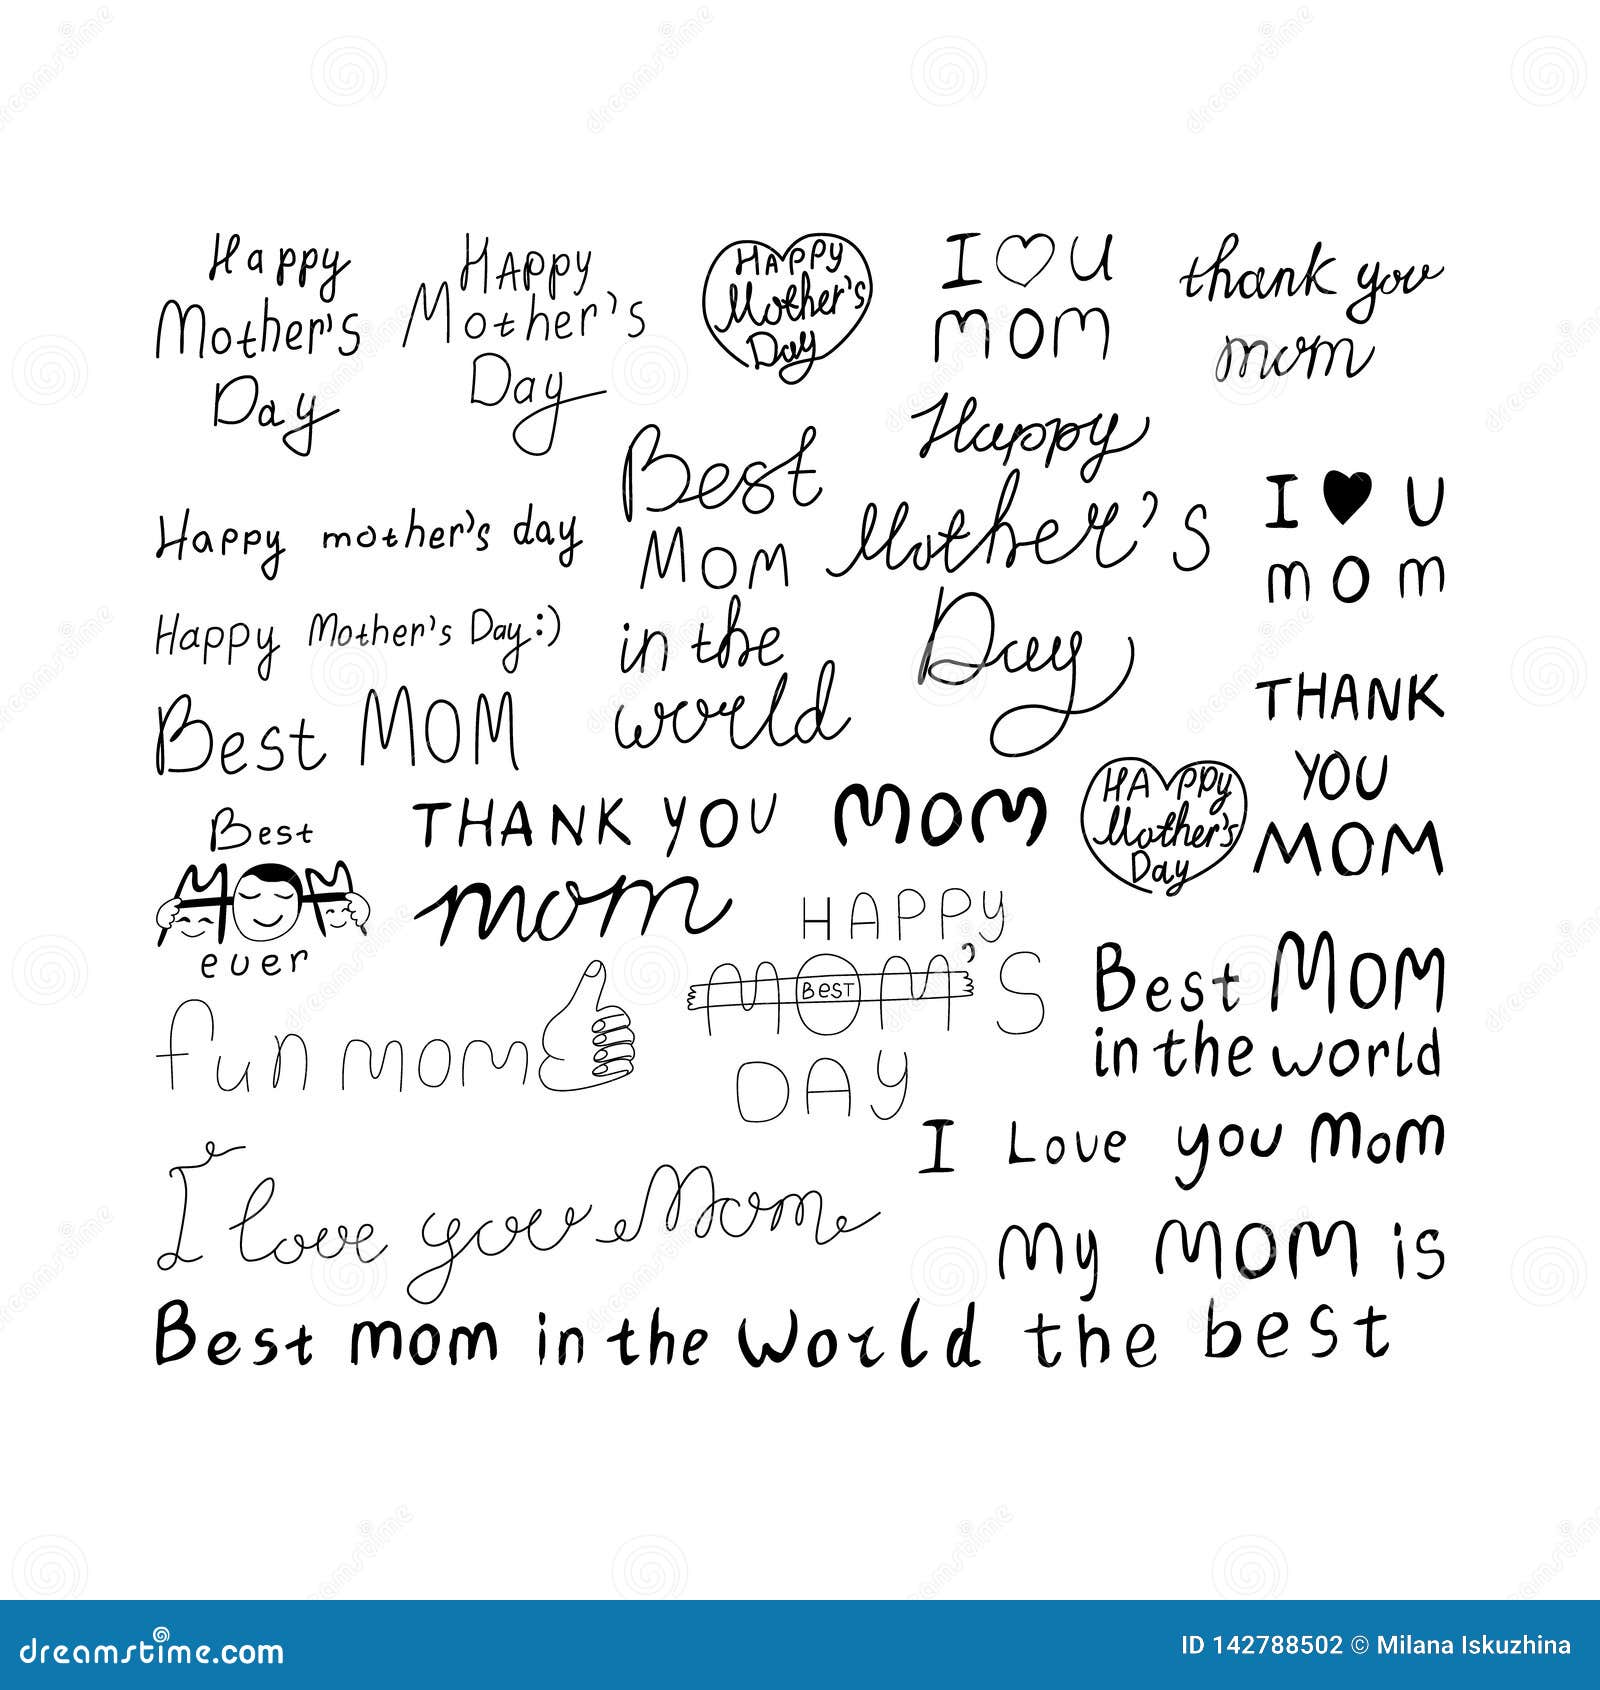 Happy
Mother's
Day
HAppy
Mother's
Day
HAppy
Mother's
Day
I U
mom
thank you
mom
Happy
Mother's
Day
Best
MOM
in the
world
I U
mom
Happy mother's day
Happy Mother's Day:)
Best MOM
THANK
YOU
MOM
HAppy
Mother's
Day
Best
MOM
ever
THANK YOU MOM
mom
HAPPY
MOM'S
BEST
DAY
Best MOM
in the world
fun mom
I Love you Mom
I love you Mom
My MOM is
the best
Best mom in the World
dreamstime.com
ID 142788502 © Milana Iskuzhina